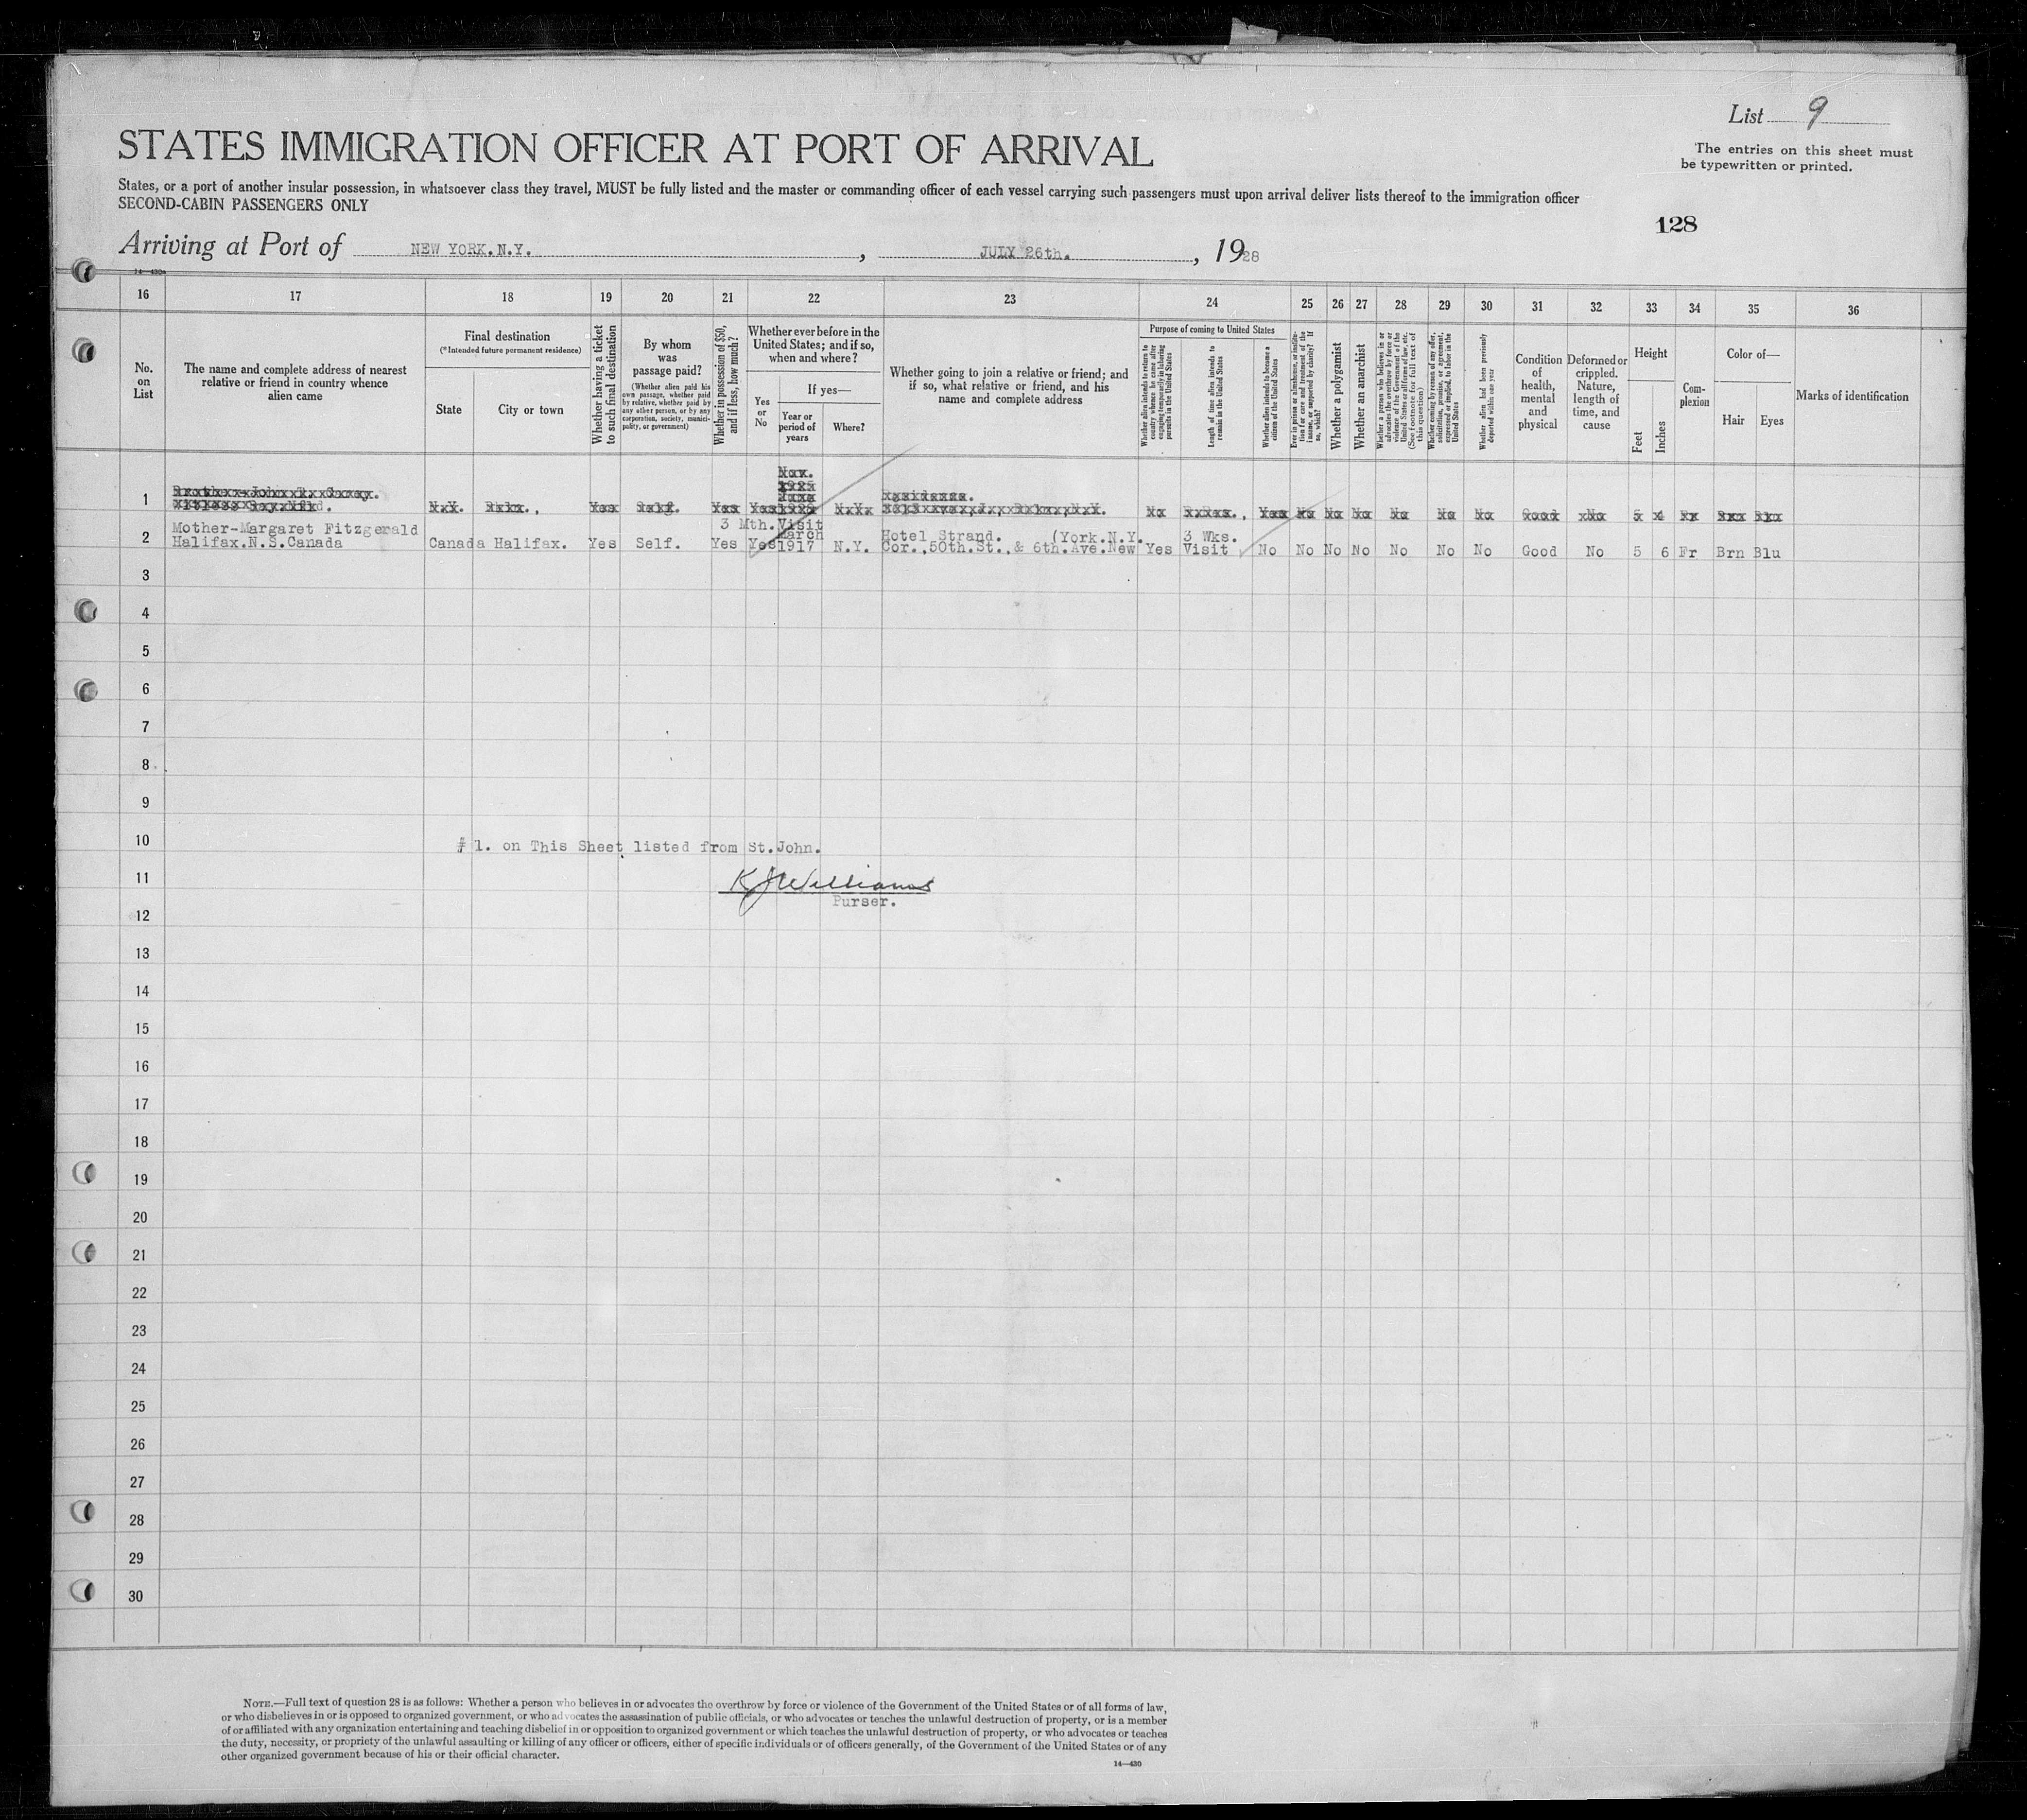 List 9
STATES IMMIGRATION OFFICER AT PORT OF ARRIVAL
The entries on this sheet must
be typewritten or printed.
States, or a port of another insular possession, in whatsoever class they travel, MUST be fully listed and the master or commanding officer of each vessel carrying such passengers must upon arrival deliver lists thereof to the immigration officer
SECOND-CABIN PASSENGERS ONLY
128
Arriving at Port of NEW YORK.N.Y. , JULY 26th. , 1928
14—430a
16 17 18 19 20 21 22 23 24 25 26 27 28 29 30 31 32 33 34 35 36
No.
on
List
The name and complete address of nearest
relative or friend in country whence
alien came
Final destination
(*Intended future permanent residence)
State
City or town
Whether having a ticket
to such final destination
By whom
was
passage paid?
(Whether alien paid his
own passage, whether paid
by relative, whether paid by
any other person, or by any
corporation, society, munici-
pality, or government)
Whether in possession of $50,
and if less, how much?
Whether ever before in the
United States; and if so,
when and where?
Yes
or
No
If yes—
Year or
period of
years
Where?
Whether going to join a relative or friend; and
if so, what relative or friend, and his
name and complete address
Purpose of coming to United States
Whether alien intends to return to
country whence he came after
engaging temporarily in laboring
pursuits in the United States
Length of time alien intends to
remain in the United States
Whether alien intends to become a
citizen of the United States
Ever in prison or almshouse, or institu-
tion for care and treatment of the
insane, or supported by charity? If
so, which?
Whether a polygamist
Whether an anarchist
Whether a person who believes in or
advocates the overthrow by force or
violence of the Government of the
United States or all forms of law, etc.
(See footnote for full text of
this question)
Whether coming by reason of any offer,
solicitation, promise, or agreement,
expressed or implied, to labor in the
United States
Whether alien had been previously
deported within one year
Condition
of
health,
mental
and
physical
Deformed or
crippled.
Nature,
length of
time, and
cause
Height
Feet
Inches
Com-
plexion
Color of—
Hair
Eyes
Marks of identification
1
N.Y. Yes Self. Yes Yes No Yes No No No No No No Good No 5 4
3 Mth.Visit
2 Mother-Margaret Fitzgerald
Halifax.N.S.Canada
Canada Halifax. Yes Self. Yes Yes March
1917 N.Y. Hotel Strand. (York.N.Y.
Cor.,50th.St.,& 6th.Ave.New Yes 3 Wks.
Visit No No No No No No No Good No 5 6 Fr Brn Blu
3
4
5
6
7
8
9
10 # 1. on This Sheet listed from St.John.
11 K J Williams
12 Purser.
13
14
15
16
17
18
19
20
21
22
23
24
25
26
27
28
29
30
NOTE.—Full text of question 28 is as follows: Whether a person who believes in or advocates the overthrow by force or violence of the Government of the United States or of all forms of law,
or who disbelieves in or is opposed to organized government, or who advocates the assassination of public officials, or who advocates or teaches the unlawful destruction of property, or is a member
of or affiliated with any organization entertaining and teaching disbelief in or opposition to organized government or which teaches the unlawful destruction of property, or who advocates or teaches
the duty, necessity, or propriety of the unlawful assaulting or killing of any officer or officers, either of specific individuals or of officers generally, of the Government of the United States or of any
other organized government because of his or their official character.
14—430